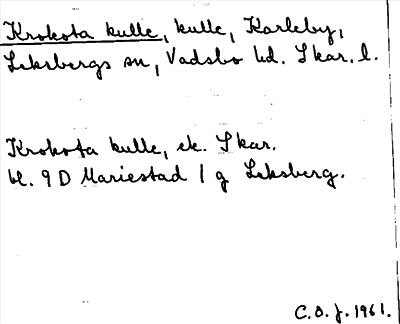 Krokota kulle, kulle, Karleby,
Leksbergs sn, Vadsbo hd. Skar. l.
Krokota kulle, ek. Skar.
bl. 9D Mariestad 1 g Leksberg.
C.O.J. 1961.